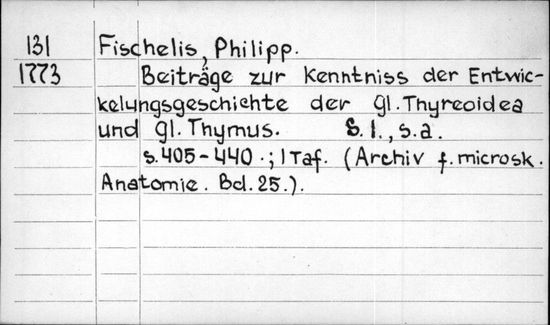 131 Fischelis, Philipp.
1773 Beiträge zur Kenntniss der Entwic-
kelungsgeschichte der gl. Thyreoidea
und gl. Thymus. S. l., s. a.
s. 405-440.; 1 Taf. (Archiv f. microsk.
Anatomie. Bd. 25.).